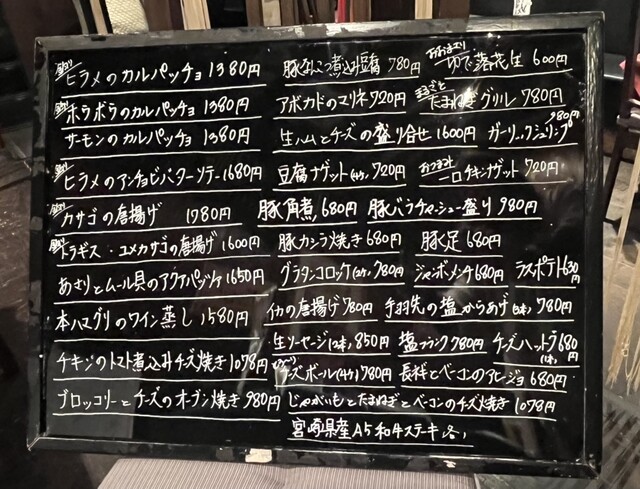 ヒラメのカルパッチョ 1380円
ホウボウのカルパッチョ 1380円
サーモンのカルパッチョ 1380円
ヒラメのアンチョビバターソテー 1680円
カサゴの唐揚げ 1780円
トラギス・ユメカサゴの唐揚げ 1600円
あさりとムール貝のアクアパッツァ 1650円
本ハマグリのワイン蒸し 1580円
チキンのトマト煮込みチーズ焼き 1078円
ブロッコリーとチーズのオーブン焼き 980円
豚なんこつ煮込み豆腐 780円
アボカドのマリネ 720円
生ハムとチーズの盛り合せ 1600円
豆腐ナゲット 720円
豚角煮 680円
豚バラチャーシュー盛り 980円
豚カシラ焼き 680円
豚足 680円
グラタンコロッケ 780円
ジャンボメンチ 680円
ラスポテト 630円
イカの唐揚げ 780円
手羽先の塩からあげ 780円
生ソーセージ 850円
塩フランク 780円
チーズハットグ 680円
チーズボール 780円
長芋とベーコンのアヒージョ 680円
じゃがいもとたまねぎとベーコンのチーズ焼き 1078円
宮崎県産A5和牛ステーキ
ゆで落花生 600円
まるごと
たまねぎグリル 780円
ガーリックシュリンプ 980円
おつまみ
一口チキンナゲット 720円